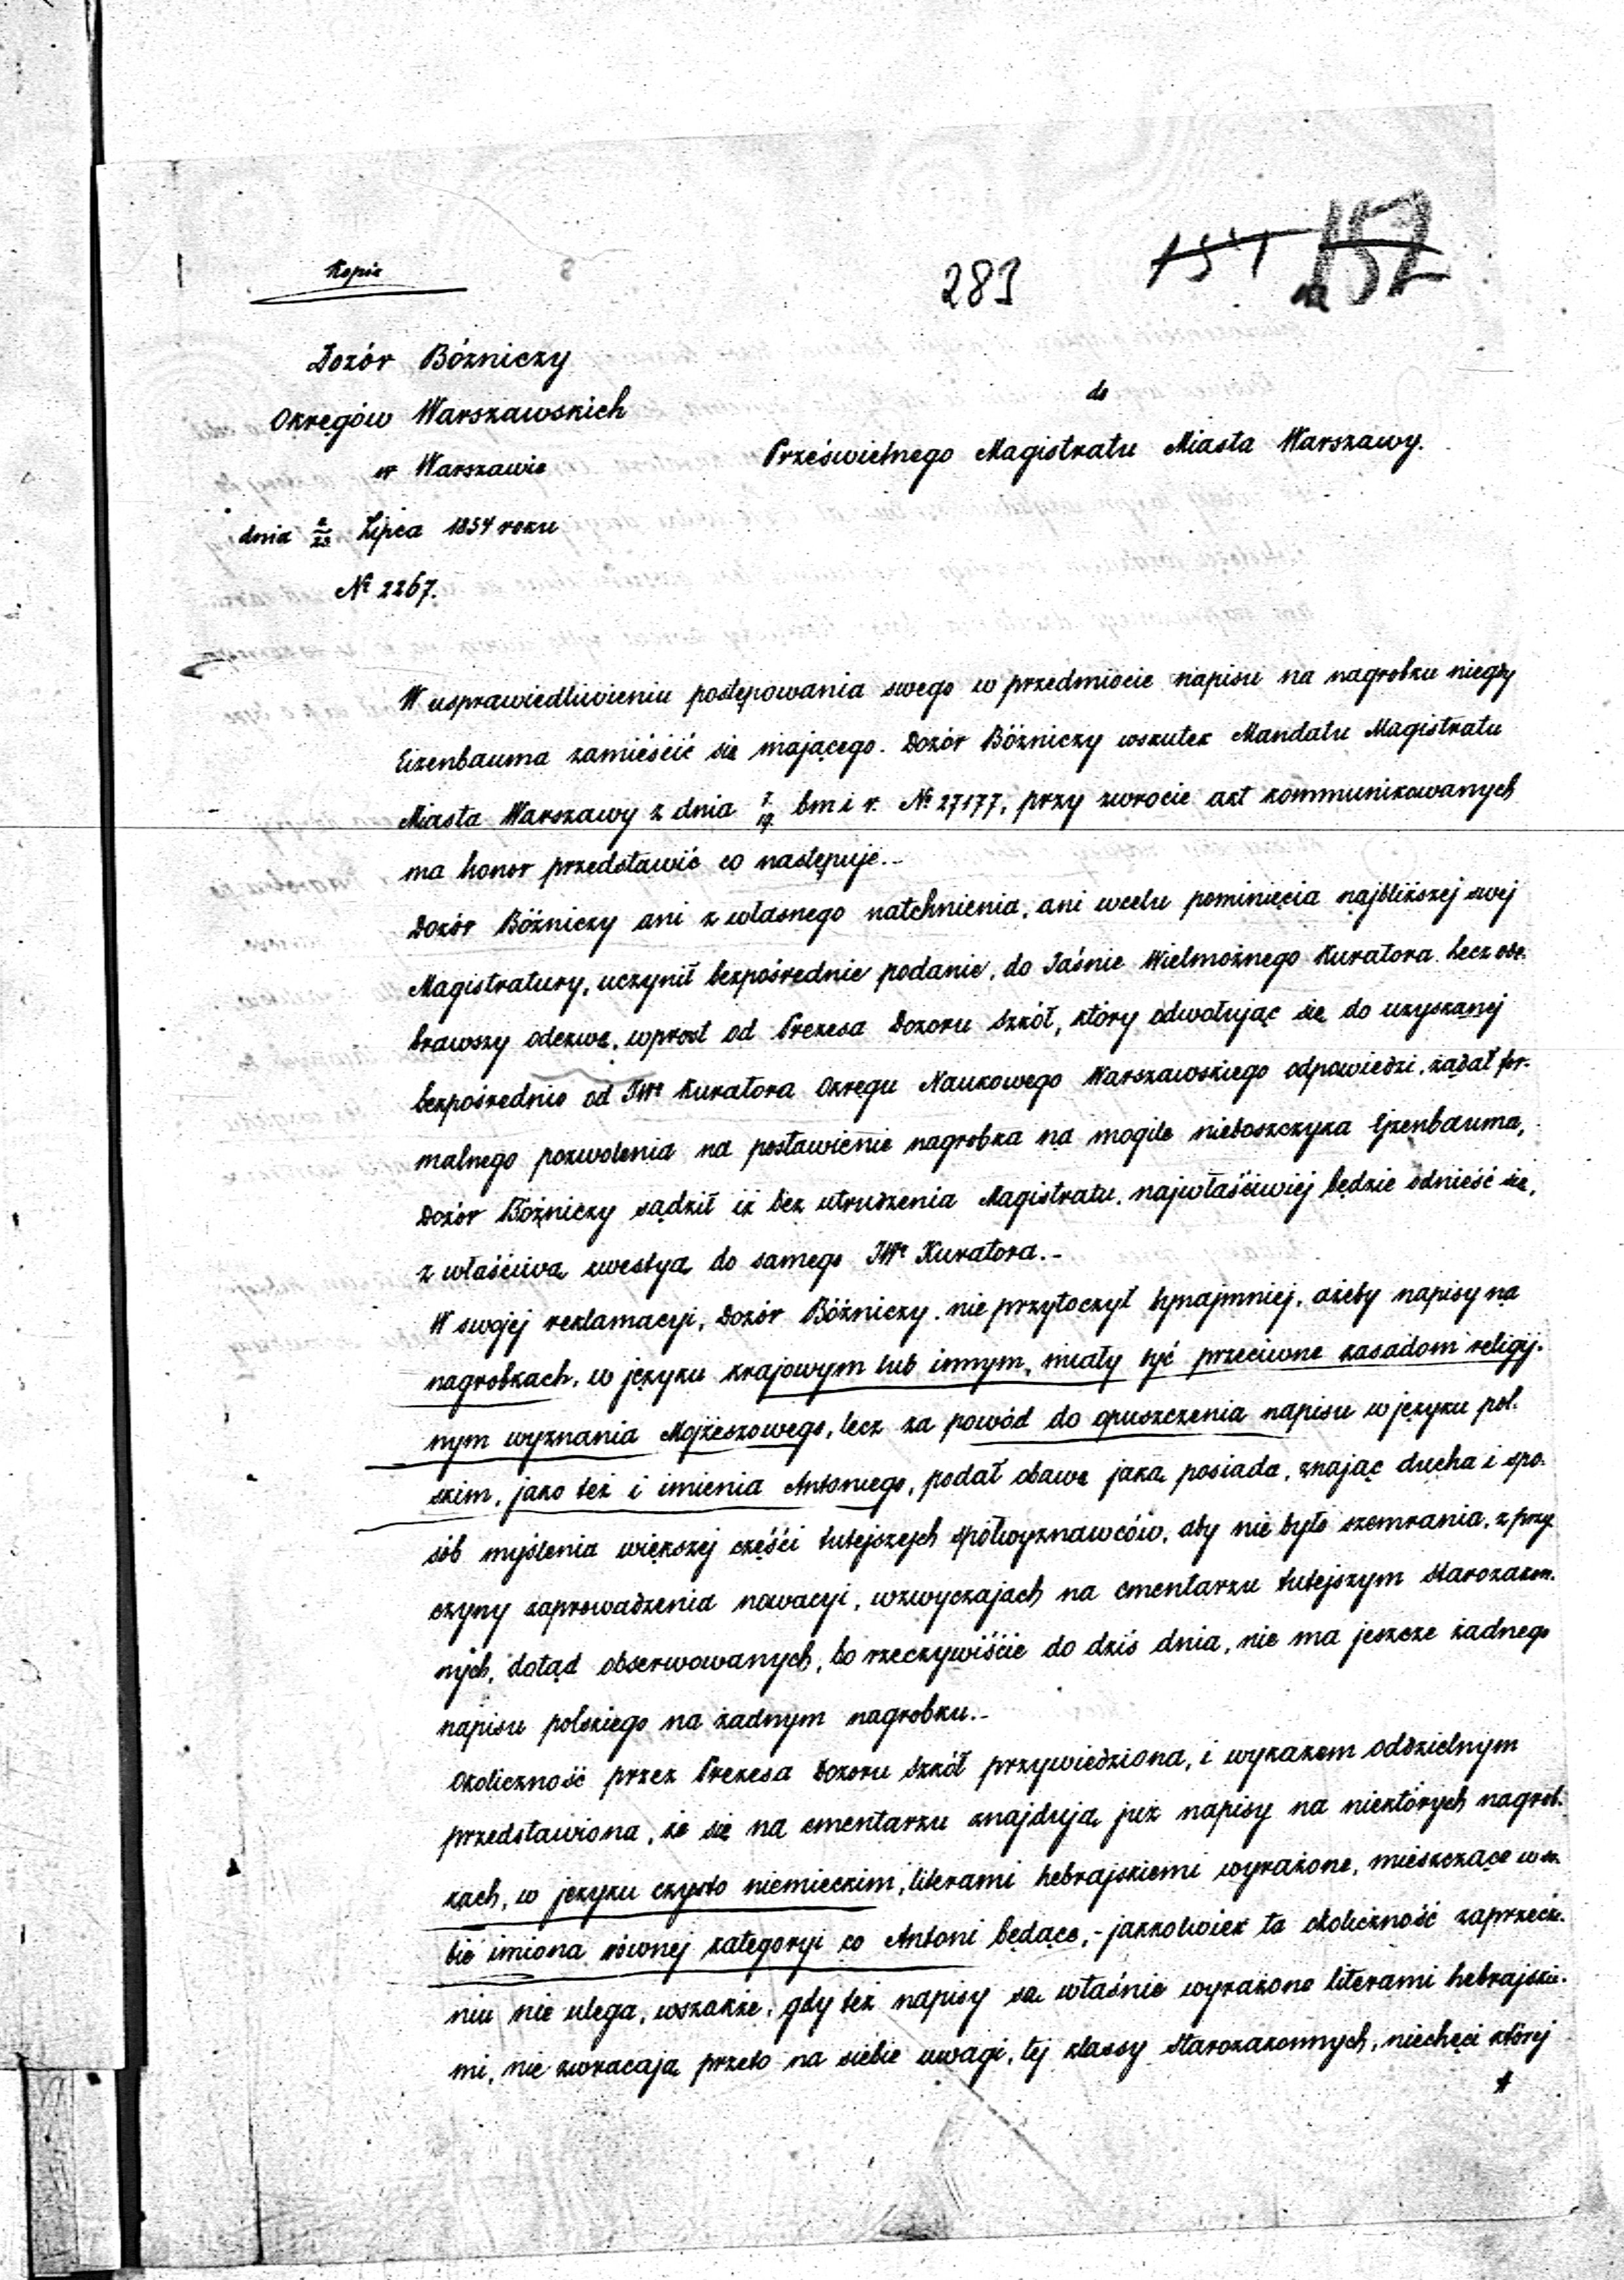 Kopia
283
151 152
Dozór Bóżniczy
Okręgów Warszawskich
w Warszawie
dnia 2/23 Lipca 1854 roku
№ 2267.
do
Prześwietnego Magistratu Miasta Warszawy.
W usprawiedliwieniu postępowania swego w przedmiocie napisu na nagrobku niegdy
Eizenbauma zamieścić się mającego. Dozór Bóżniczy wskutek Mandatu Magistratu
Miasta Warszawy z dnia 7/19 bm i r. № 27177, przy zwrocie akt kommunikowanych
ma honor przedstawić co następuje.-
Dozór Bóżniczy ani z własnego natchnienia, ani wcelu pominięcia najbliższej swej
Magistratury, uczynił bezpośrednie podanie, do Jaśnie Wielmożnego Kuratora. Lecz ode-
brawszy odezwę, wprost od Prezesa Dozoru Szkół, który odwołując się do uzyskanej
bezpośrednio od JWo Kuratora Okręgu Naukowego Warszawskiego odpowiedzi, żądał for-
malnego pozwolenia na postawienie nagrobka na mogile nieboszczyka Ejzenbauma,
Dozór Bóżniczy sądził iż bez utrudzenia Magistratu, najwłaściwiej będzie odnieść się,
z właściwą kwestyą do samego JWo Kuratora.-
W swojej reklamacyi, Dozór Bóżniczy. nie przytoczył bynajmniej, ażeby napisy na
nagrobkach, w języku krajowym lub innym, miały być przeciwne zasadom religij-
nym wyznania Mojżeszowego, lecz za powód do opuszczenia napisu w języku pol-
skim, jako też i imienia Antoniego, podał obawę jaką posiada, znając ducha i spo-
sób myślenia większej części tutejszych spółwyznawców, aby nie było szemrania, z przy
czyny zaprowadzenia nowacyi, wzwyczajach na cmentarzu tutejszym starozakon-
nych, dotąd obserwowanych, bo rzeczywiście do dziś dnia, nie ma jeszcze żadnego
napisu polskiego na żadnym nagrobku.-
Okoliczność przez Prezesa Dozoru Szkół przywiedziona, i wykazem oddzielnym
przedstawiona, że się na cmentarzu znajdują już napisy na niektórych nagrob-
kach, w języku czysto niemieckim, literami hebrajskiemi wyrażone, mieszczące w so-
bie imiona równej kategoryi co Antoni będące,- jakkolwiek ta okoliczność zaprzecze-
niu nie ulega, wszakże, gdy też napisy są właśnie wyrażone literami hebrajskie-
mi, nie zwracają przeto na siebie uwagi, tej klassy starozakonnych, niechęci której